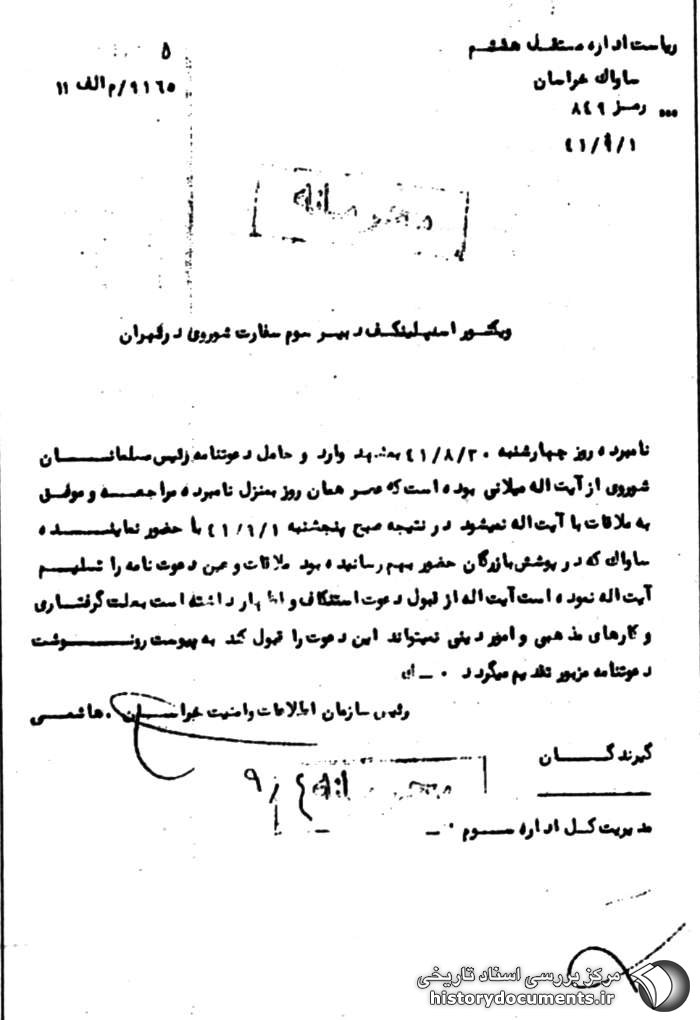 ریاست اداره مستقل هشتم
۵
ساواک خراسان
۹۱۶۵/م الف ۱۱
... رمز ۸۴۹
۴۱/۹/۱
محرمانه
ویکتور اسپلینکف دبیر سوم سفارت شوروی در تهران
نامبرده روز چهارشنبه ۴۱/۸/۳۰ بمشهد وارد و حامل دعوتنامه رئیس مسلمانان
شوروی از آیت اله میلانی بوده است که عصر همان روز بمنزل نامبرده مراجعه و موفق
به ملاقات با آیت اله نمیشود در نتیجه صبح پنجشنبه ۴۱/۹/۱ با حضور نماینده
ساواک که در پوشش بازرگان حضور بهم رسانیده بود ملاقات و عین دعوت نامه را تسلیم
آیت اله نموده است آیت اله از قبول دعوت استنکاف و اظهار داشته است بعلت گرفتاری
و کارهای مذهبی و امور دینی نمیتواند این دعوت را قبول کند به پیوست رونوشت
دعوتنامه مزبور تقدیم میگردد ۰ــ ک
رئیس سازمان اطلاعات و امنیت خراسان . هاشمی
گیرندگان
محرمانه
۴/۹
مدیریت کل اداره سوم ۰ــ
مرکز بررسی اسناد تاریخی
historydocuments.ir